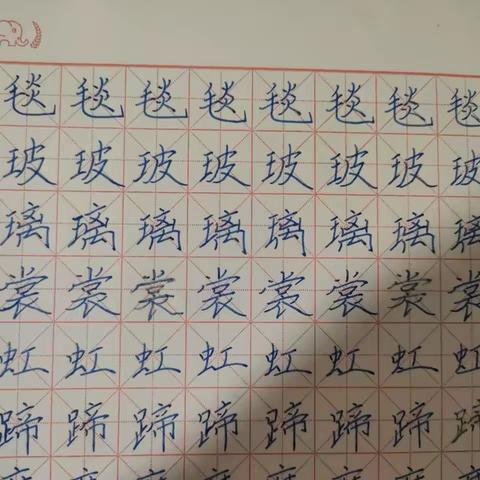 毯毯毯毯毯毯毯毯
玻玻玻玻玻玻玻玻
璃璃璃璃璃璃璃璃
裳裳裳裳裳裳裳裳
虹虹虹虹虹虹虹虹
蹄蹄蹄蹄蹄蹄蹄蹄